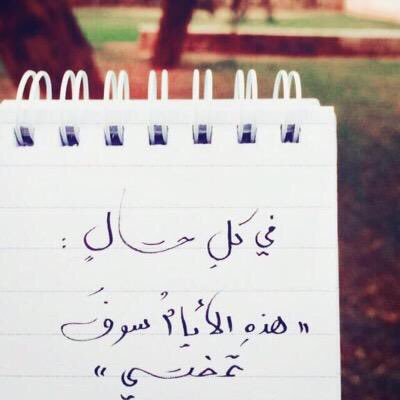 في كلِ حالٍ :
" هذهِ الأيامُ سوفَ
تمضي "